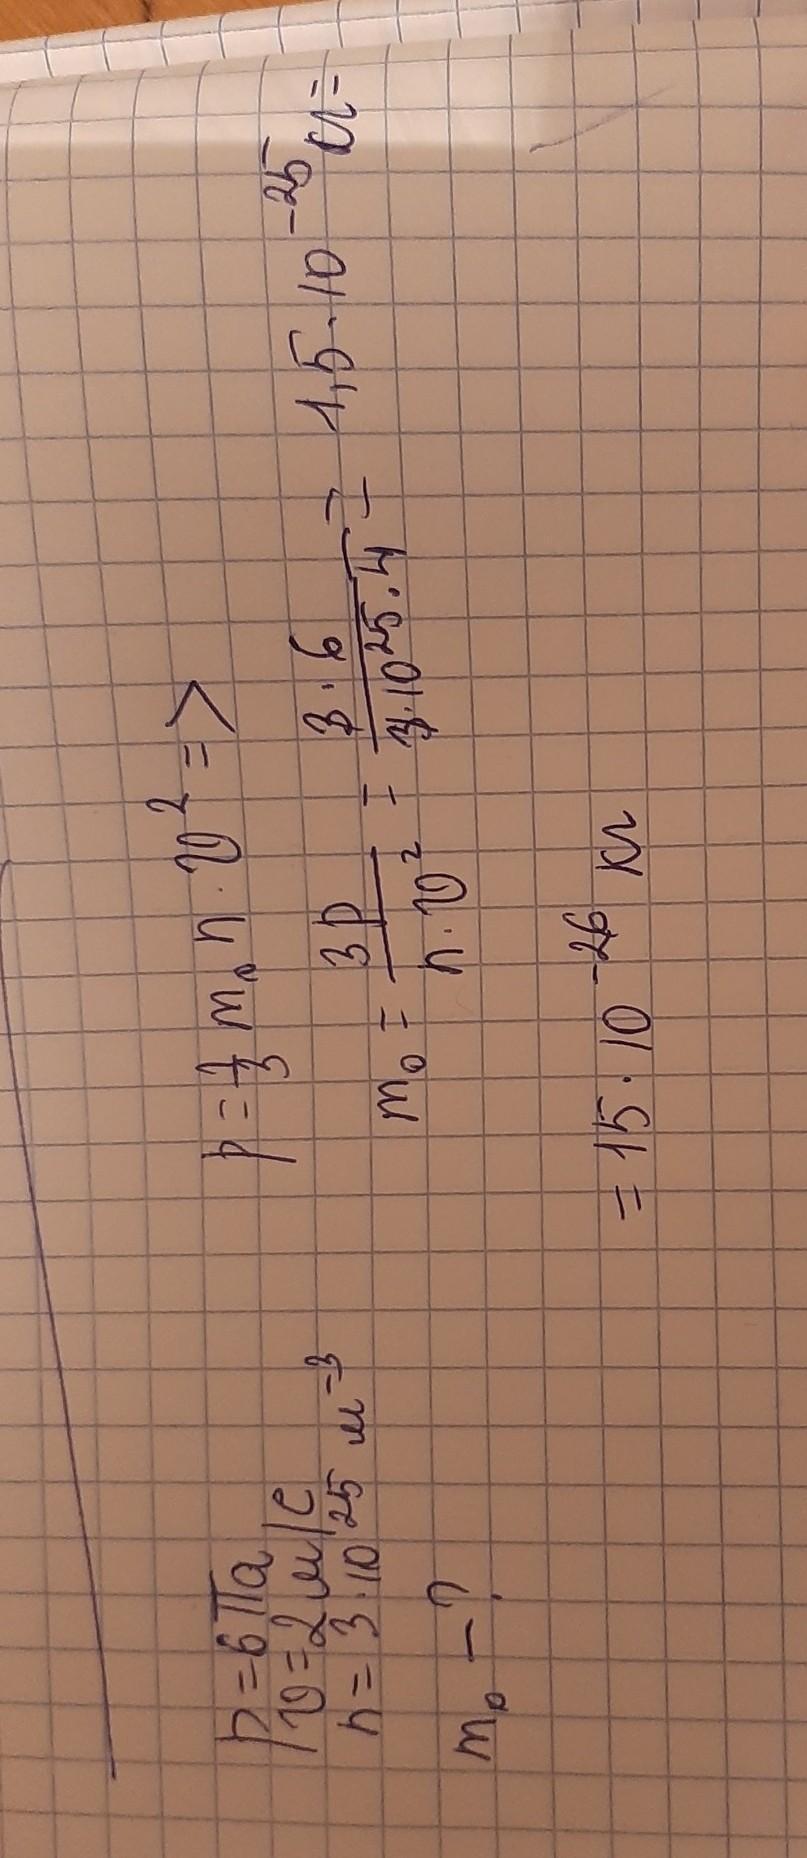 p=6 Па
v=2 м/с
n=3·10²⁵ м⁻³
m₀ – ?
p = 1/3 m₀ n · v² =>
m₀ = 3p / n·v² = 3·6 / 3·10²⁵·4 = 1,5·10⁻²⁵ кг =
= 15·10⁻²⁶ кг